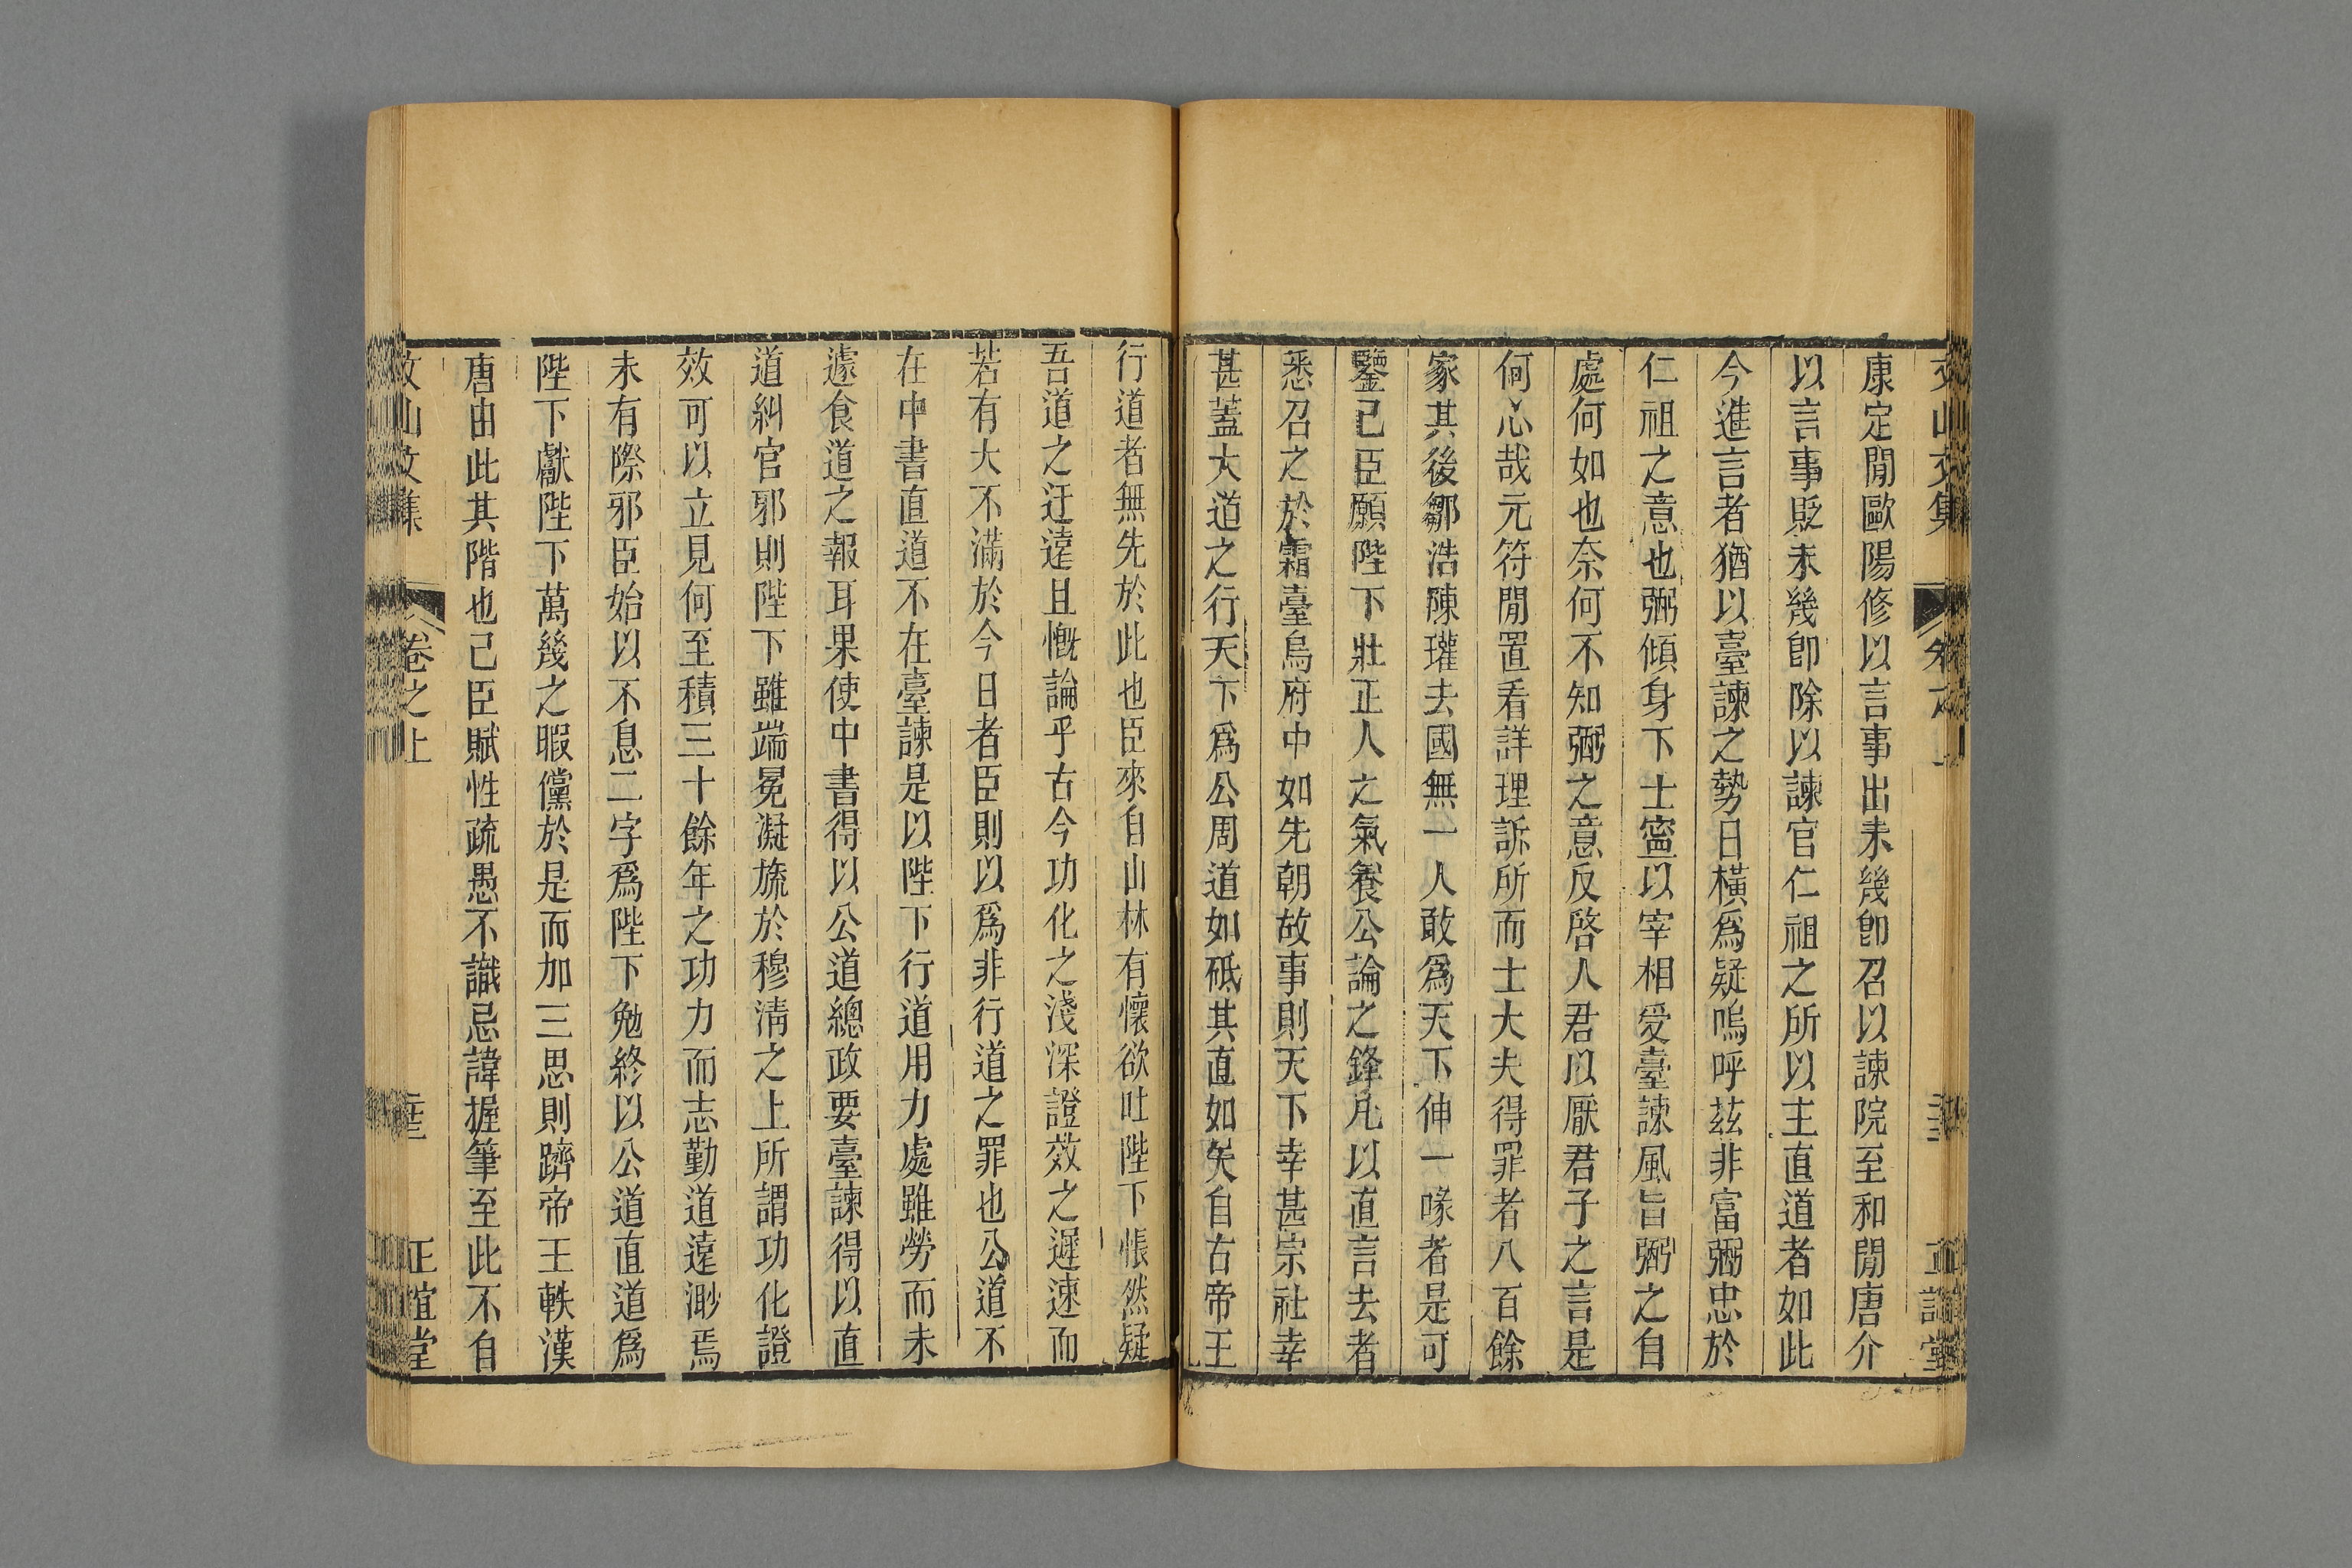 文山文集
康定閒歐陽修以言事出未幾卽召以諫院至和閒唐介
以言事貶未幾卽除以諫官仁祖之所以主直道者如此
今進言者猶以臺諫之勢日橫爲疑嗚呼茲非富弼忠於
仁祖之意也弼傾身下士寍以宰相受臺諫風旨弼之自
處何如也奈何不知弼之意反啓人君以厭君子之言是
何心哉元符閒置看詳理訴所而士大夫得罪者八百餘
家其後鄒浩陳瓘去國無一人敢爲天下伸一喙者是可
鑒已臣願陛下壯正人之氣養公論之鋒凡以直言去者
悉召之於霜臺烏府中如先朝故事則天下幸甚宗社幸
甚蓋大道之行天下爲公周道如砥其直如矢自古帝王
行道者無先於此也臣來自山林有懷欲吐陛下悵然疑
吾道之迂遠且慨論乎古今功化之淺深證效之遲速而
若有大不滿於今日者臣則以爲非行道之罪也公道不
在中書直道不在臺諫是以陛下行道用力處雖勞而未
遽食道之報耳果使中書得以公道總政要臺諫得以直
道糾官邪則陛下雖端冕凝旒於穆淸之上所謂功化證
效可以立見何至積三十餘年之功力而志勤道遠渺焉
未有際邪臣始以不息二字爲陛下勉終以公道直道爲
陛下獻陛下萬幾之暇儻於是而加三思則躋帝王軼漢
唐由此其階也已臣賦性疏愚不識忌諱握筆至此不自
文山文集 卷之上 正誼堂